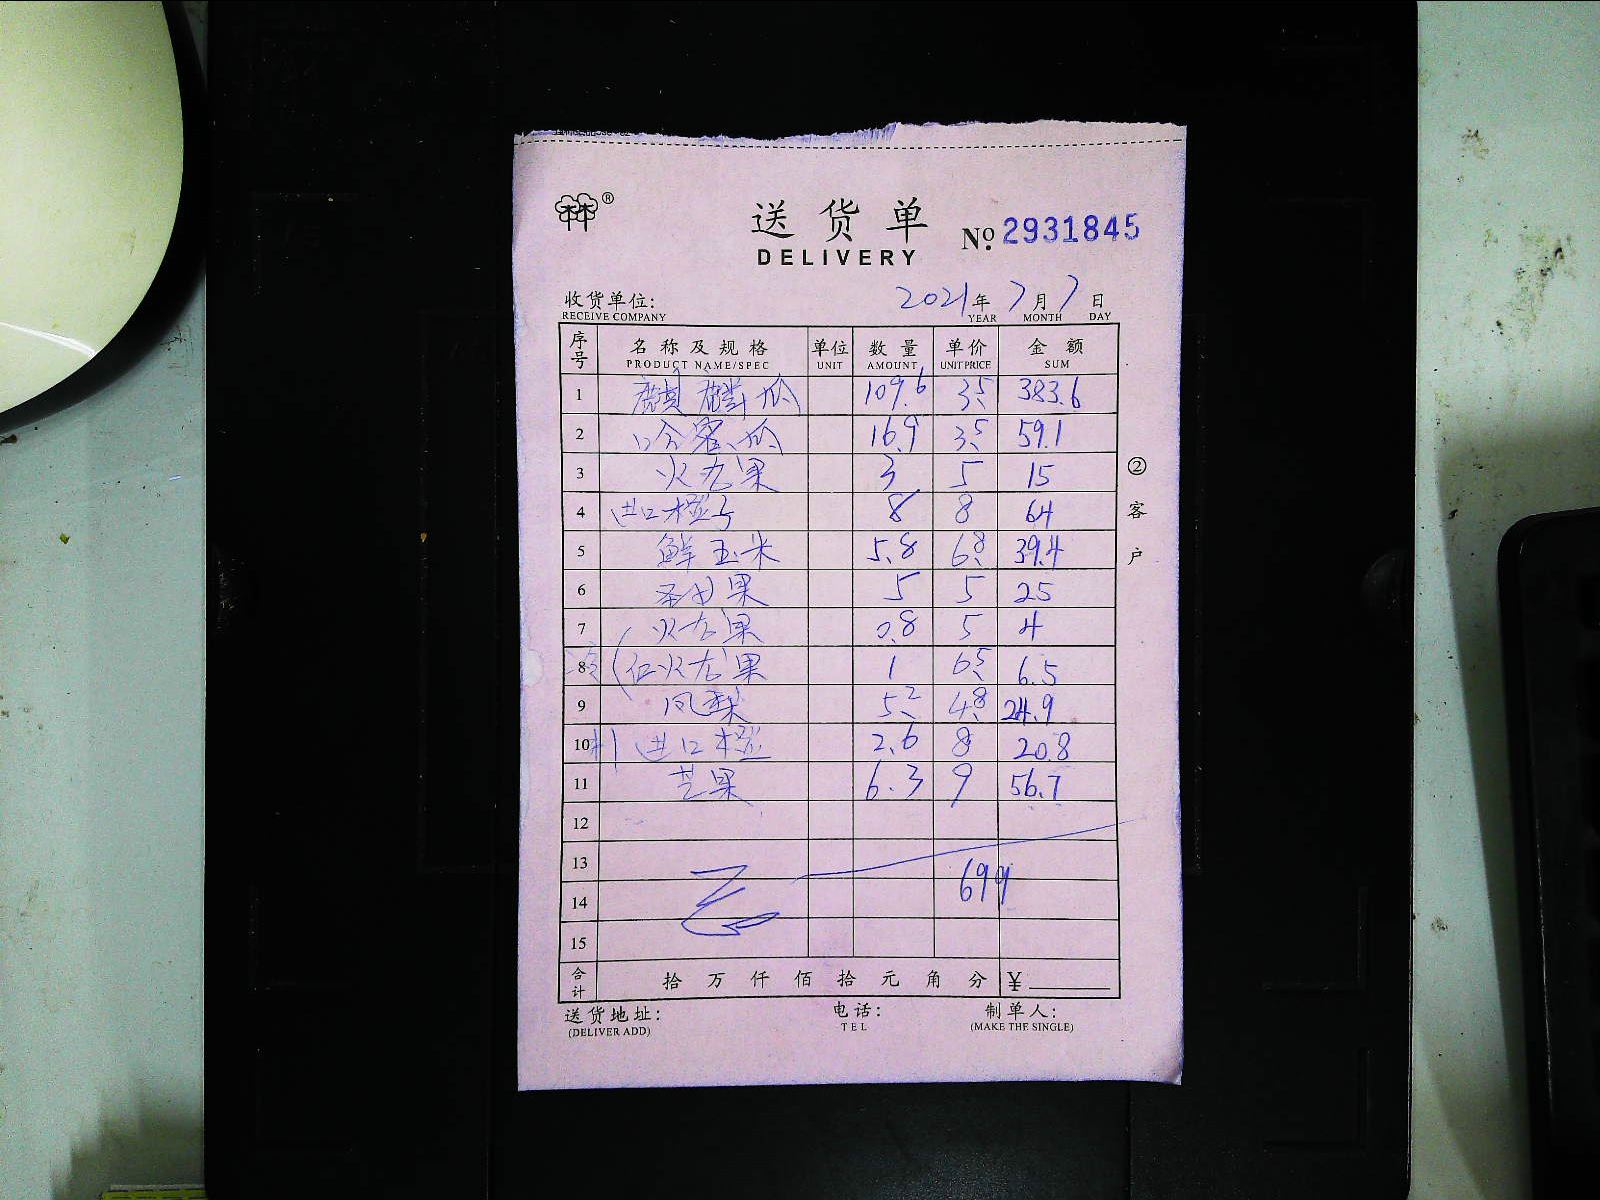 林林®
送货单
DELIVERY
No. 2931845
收货单位: 2021年7月7日
RECEIVE COMPANY YEAR MONTH DAY
序号 名称及规格 单位 数量 单价 金额
PRODUCT NAME/SPEC UNIT AMOUNT UNIT PRICE SUM
1 麒麟瓜 109.6 3.5 383.6
2 哈密瓜 16.9 3.5 59.1
3 火龙果 3 5 15
4 进口橙子 8 8 64
5 鲜玉米 5.8 6.8 39.4
6 圣女果 5 5 25
7 火龙果 0.8 5 4
8 红火龙果 1 6.5 6.5
9 凤梨 5.2 4.8 24.9
10 进口橙 2.6 8 20.8
11 芒果 6.3 9 56.7
12
13
699
14
15
合计 拾万仟佰拾元角分 ¥
送货地址: 电话: 制单人:
(DELIVER ADD) TEL (MAKE THE SINGLE)
②客户